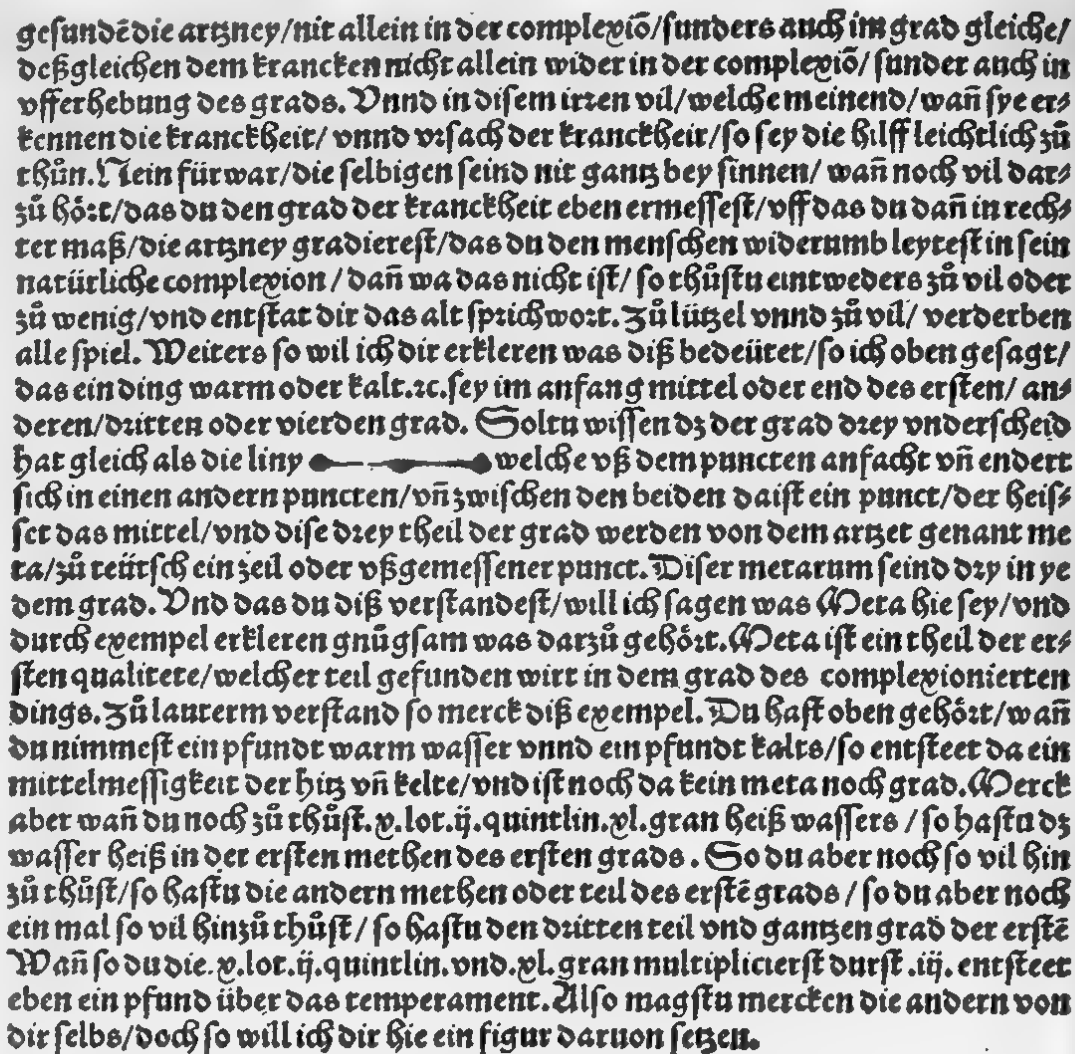 gesundē die artzney/nit allein in der complexiō/sunders auch im grad gleiche/
deßgleichen dem krancken nicht allein wider in der complexiō/ sunder auch in
vfferhebung des grads. Vnnd in disem irren vil/welche meinend/wañ sye er⸗
kennen die kranckheit/ vnnd vrsach der kranckheir/so sey die hilff leichtlich zů
thůn. Nein fürwar/die selbigen seind nit gantz bey sinnen/ wañ noch vil dar⸗
zů hört/das du den grad der kranckheit eben ermessest/vff das du dañ in rech⸗
ter maß/die artzney gradierest/das du den menschen widerumb leytest in sein
natürliche complexion / dañ wa das nicht ist/ so thůstu eintweders zů vil oder
zů wenig/vnd entstat dir das alt sprichwort. Zů lützel vnnd zů vil/ verderben
alle spiel. Weiters so wil ich dir erkleren was diß bedeütet/so ich oben gesagt/
das ein ding warm oder kalt.ꝛc.sey im anfang mittel oder end des ersten/ an⸗
deren/dritten oder vierden grad. Soltu wissen dz der grad drey vnderscheid
hat gleich als die liny welche vß dem puncten anfacht vñ endert
sich in einen andern puncten/vñ zwischen den beiden da ist ein punct/der heis⸗
set das mittel/vnd dise drey theil der grad werden von dem artzet genant me
ta/zů teütsch ein zeil oder vßgemessener punct. Diser metarum seind dry in ye
dem grad. Vnd das du diß verstandest/will ich sagen was Meta hie sey/vnd
durch exempel erkleren gnůgsam was darzů gehört. Meta ist ein theil der er⸗
sten qualitete/welcher teil gefunden wirt in dem grad des complexionierten
dings. Zů lauterm verstand so merck diß exempel. Du hast oben gehört/wañ
du nimmest ein pfundt warm wasser vnnd ein pfundt kalts/so entsteet da ein
mittelmessigkeit der hitz vñ kelte/vnd ist noch da kein meta noch grad. Merck
aber wañ du noch zů thůst.x.lot.ij.quintlin.xl.gran heiß wassers / so hastu dz
wasser heiß in der ersten methen des ersten grads. So du aber noch so vil hin
zů thůst/so hastu die andern methen oder teil des erstē grads / so du aber noch
ein mal so vil hinzů thůst/ so hastu den dritten teil vnd gantzen grad der erstē
Wañ so du die.x.lot.ij.quintlin.vnd.xl.gran multiplicierst durst .iij. entsteet
eben ein pfund über das temperament. Also magstu mercken die andern von
dir selbs/doch so will ich dir hie ein figur daruon setzen.